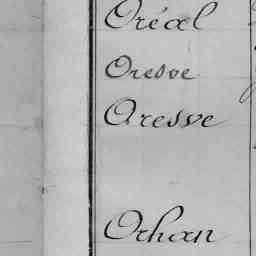 Oréal
Oresve
Oresve
Orhan